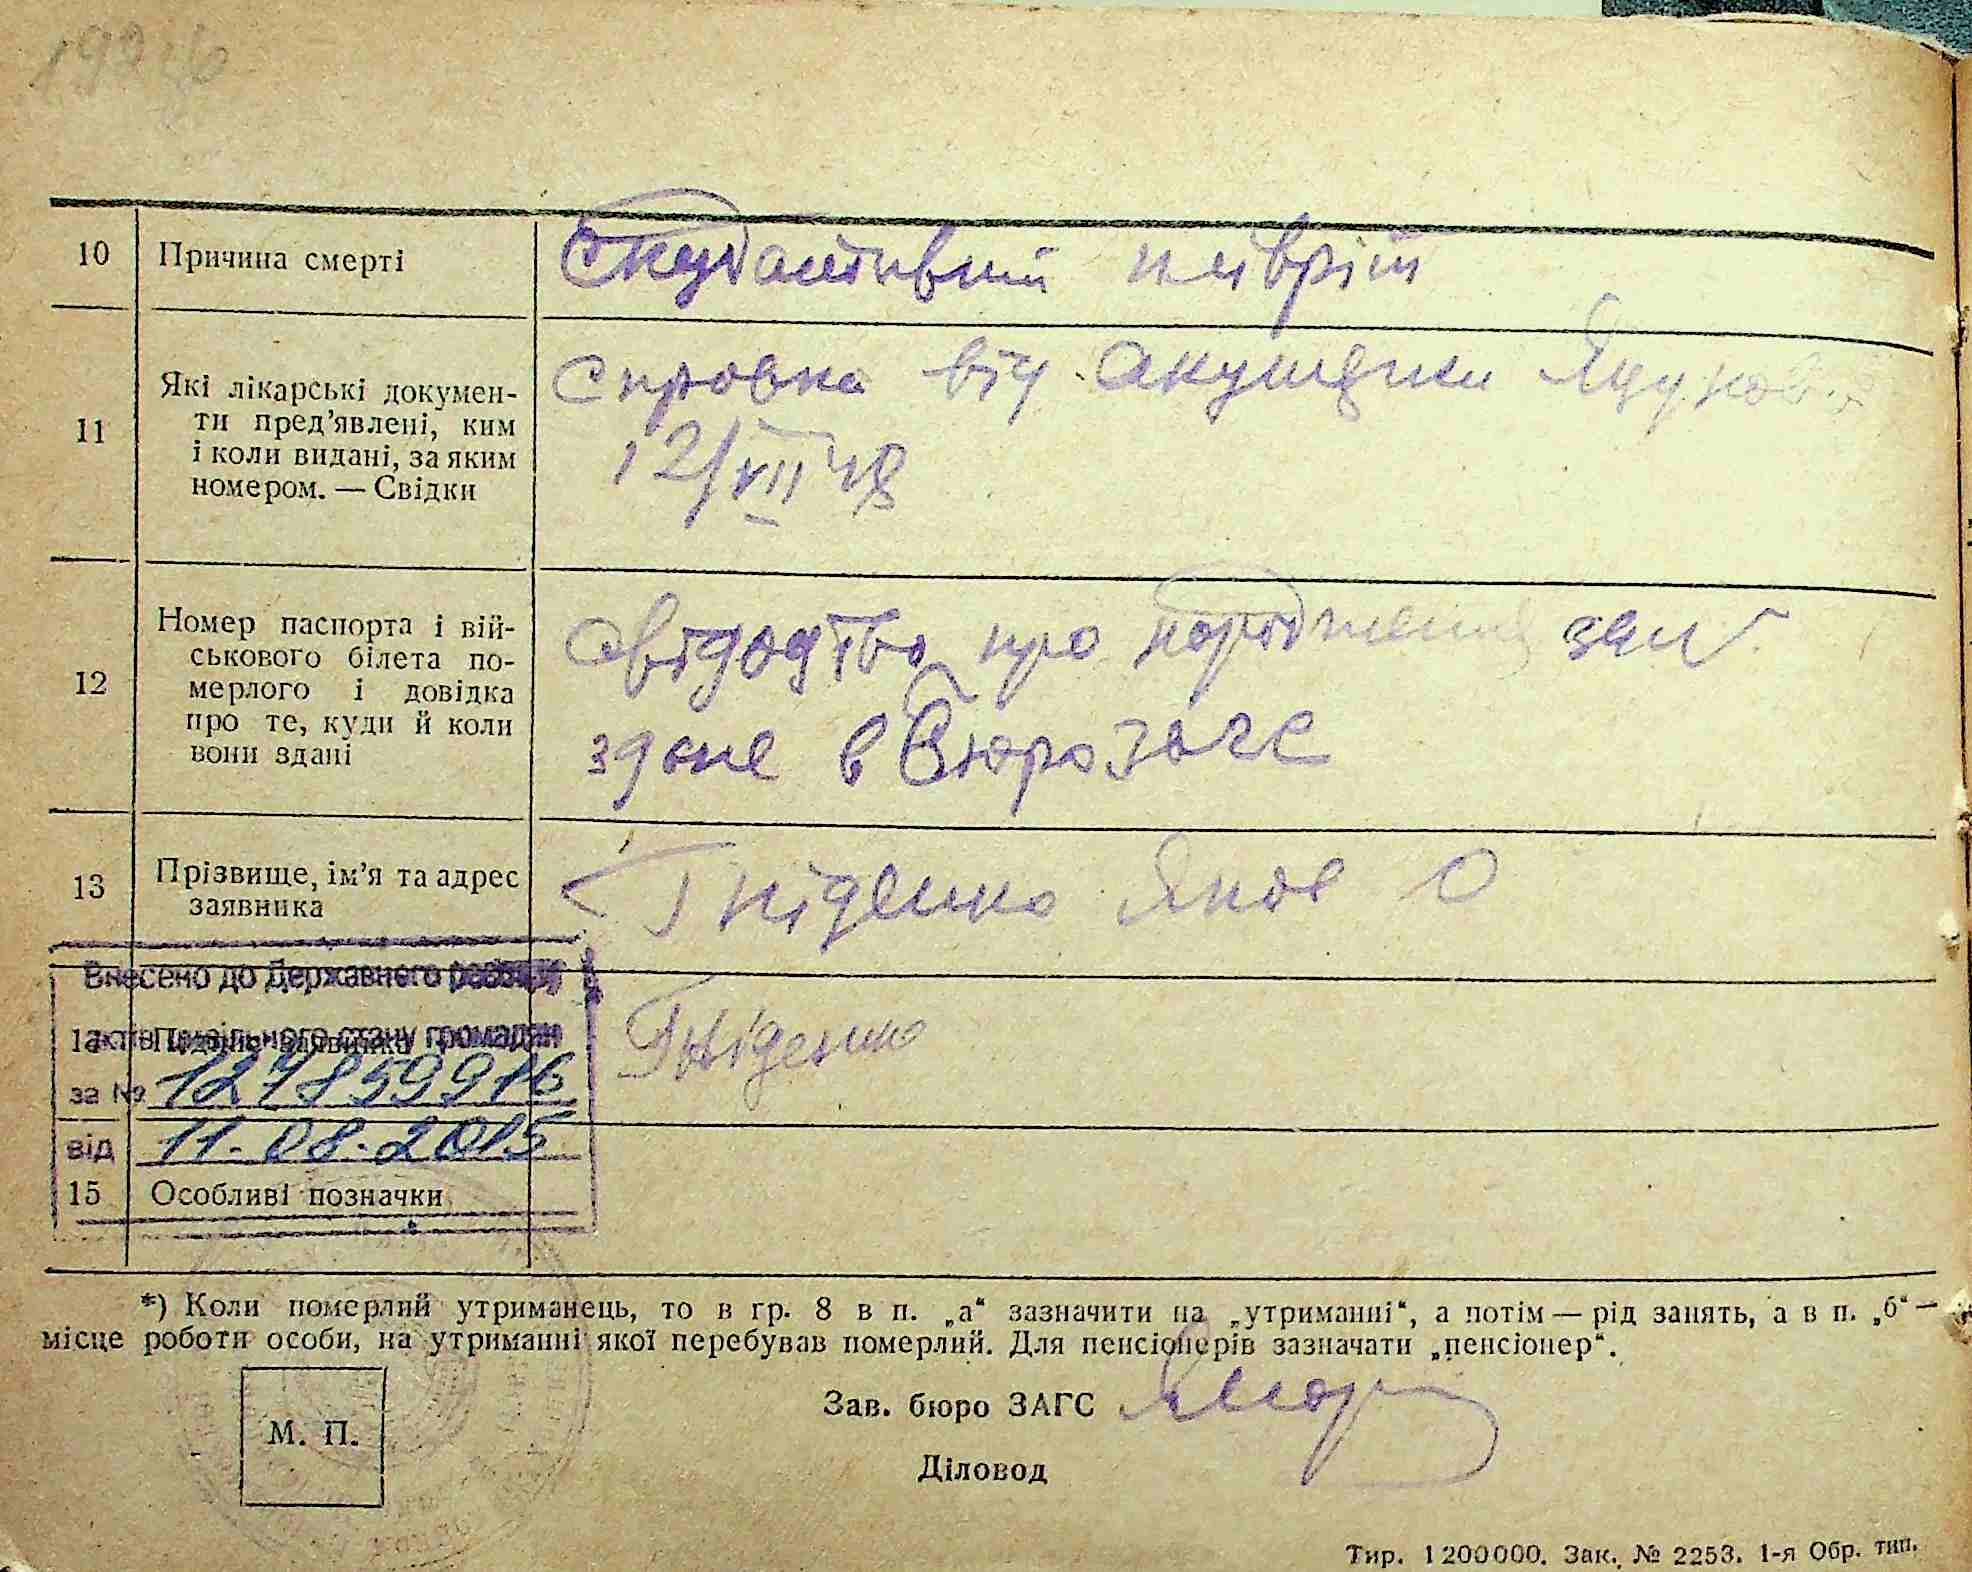 10 Причина смерті
плеврит
11 Які лікарські докумен-
ти пред'явлені, ким
і коли видані, за яким
номером. — Свідки
Справка від акушерки
12/VII 48
12 Номер паспорта і вій-
ськового білета по-
мерлого і довідка
про те, куди й коли
вони здані
свідодство про народження
здане в Бюро загс
13 Прізвище, ім'я та адрес
заявника
Гніденко Яков О
Внесено до Державного реєстру
актів цивільного стану громадян
14 Підпис заявника
Гніденко
за № 127859916
від 11.08.2015
15 Особливі позначки
*) Коли померлий утриманець, то в гр. 8 в п. „а“ зазначити на „утриманні“, а потім — рід занять, а в п. „б“ —
місце роботи особи, на утриманні якої перебував померлий. Для пенсіонерів зазначати „пенсіонер“.
М. П.
Зав. бюро ЗАГС
Діловод
Тир. 1200000. Зак. № 2253. 1-я Обр. тип.